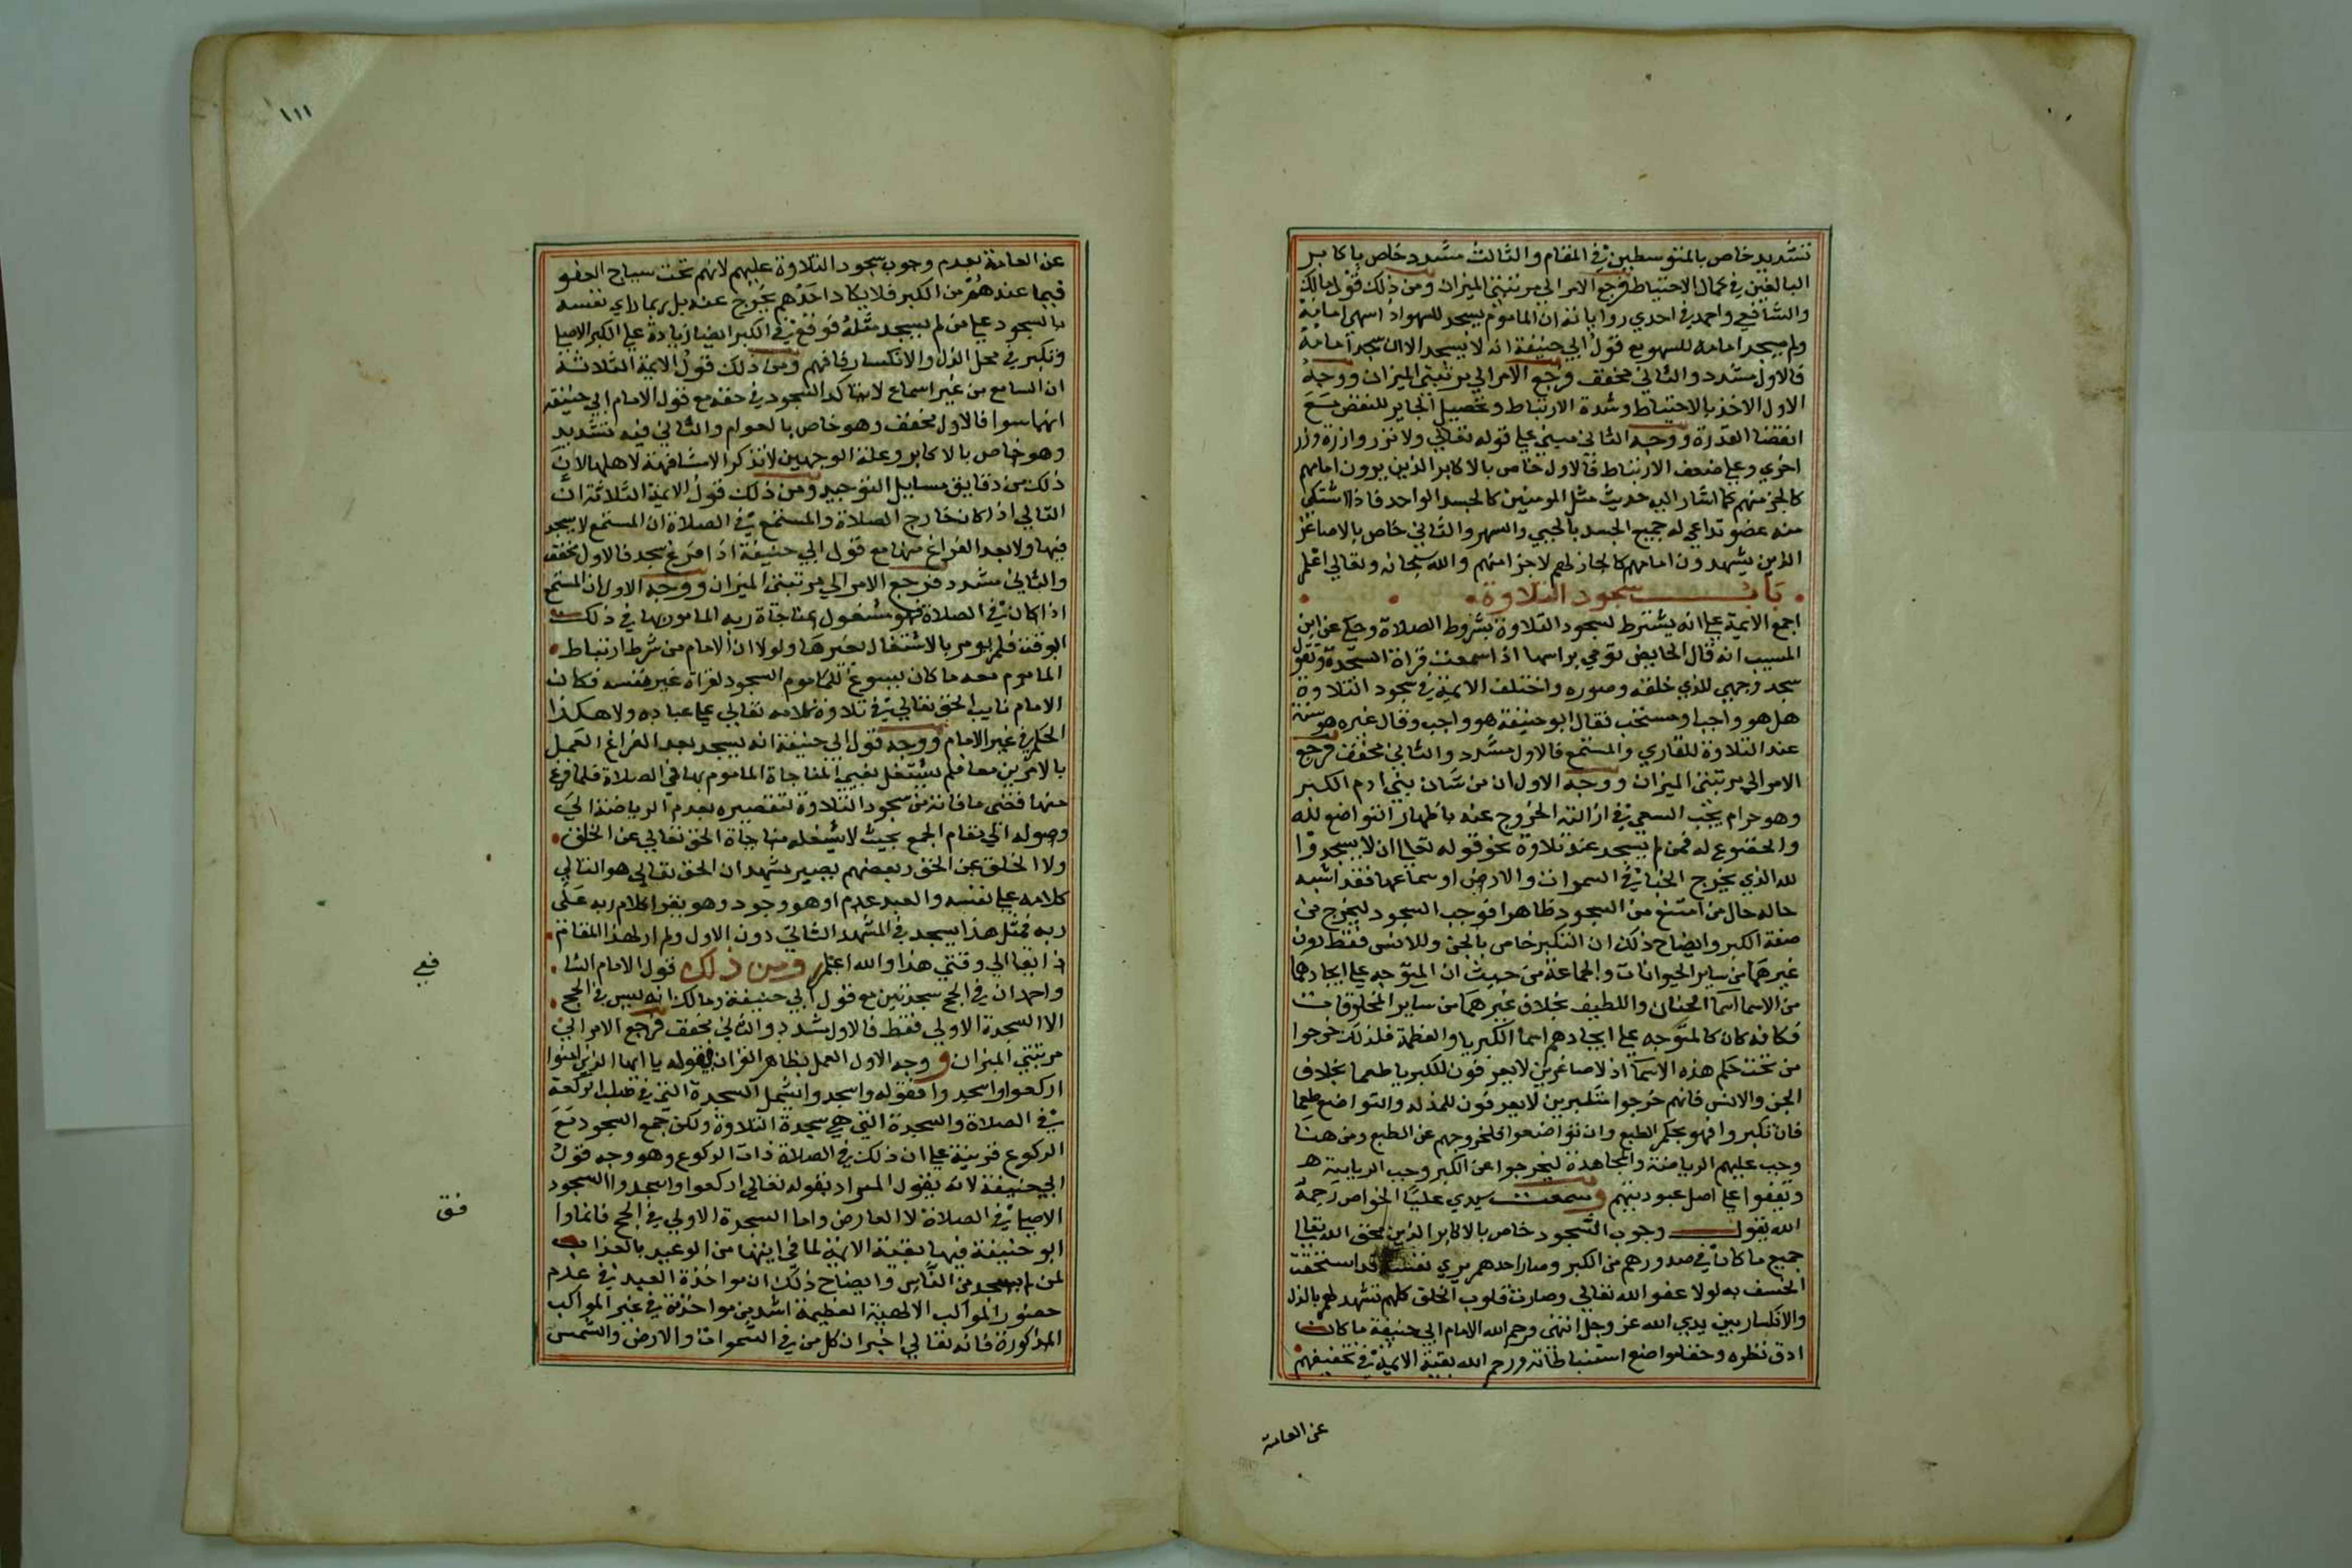 تشديد خاص بالمتوسطين في المقام والثالث مشدد خاص باكابر
البالغين في كمال الاحتياط فرجع الامر الي مرتبتي الميزان ومن ذلك قول مالك
والشافعي واحمد في احدي رواياته ان الماموم يسجد للسهو اذا سهي امامه
ولم يسجد امامه للسهو مع قول ابي حنيفة انه لا يسجد الا ان سجد امامه
فالاول مشدد والثاني مخفف ورجع الامر الي مرتبتي الميزان ووجه
الاول الاخذ بالاحتياط وشدة الارتباط وتحصيل الجابر للنقص مع
انقضا القدرة ووجه الثاني مبني علي قوله تعالي ولا تزر وازرة وزر
اخري وعلي ضعف الارتباط فالاول خاص بالاكابر الذين يرون امامهم
كالجز منهم كما اشار اليه حديث مثل المومنين كالجسد الواحد فاذا اشتكي
منه عضو تداعي له جميع الجسد بالحمي والسهر والثاني خاص بالاصاغر
الذين يشهدون امامهم كالجار لهم لا جزا منهم والله سبحانه وتعالي اعلم
باب سجود التلاوة
اجمع الايمة علي انه يشترط لسجود التلاوة شروط الصلاة وحكي عن ابن
المسيب انه قال الحايض تومي براسها اذا سمعت قراة السجدة وتقول
سجد وجهي للذي خلقه وصوره واختلف الايمة في سجود التلاوة
هل هو واجب او مستحب فقال ابو حنيفة هو واجب وقال غيره هو سنة
عند التلاوة للقاري والمستمع فالاول مشدد والثاني مخفف فرجع
الامر الي مرتبتي الميزان ووجه الاول ان من شان بني ادم الكبر
وهو حرام يجب السعي في ازالته الخروج عنه باظهار التواضع لله
والخضوع له فمن لم يسجد عند تلاوة نحو قوله تعالي ان لا يسجدوا
لله الذي يخرج الخبا في السموات والارض او سماعها فقد اشبه
حاله حال من امتنع من السجود ظاهرا فوجب السجود ليخرج من
صفة الكبر وايضاح ذلك ان التكبر خاص بالجن وللانس فقط دون
غيرهما من ساير الحيوانات والجماعة من حيث ان المتوجه علي ايجادهما
من الاسما اسما الحنان واللطيف بخلاف غيرهما من ساير المخلوقات
فكانه كان كالمتوجه علي ايجادهم اسما الكبريا والعظمة فلذلك خرجوا
من تحت حكم هذه الاسما اذلا صاغرين لا يعرفون للكبريا طعما بخلاف
الجن والانس فانهم خرجوا متكبرين لا يعرفون للمذلة والتواضع طعما
فان تكبروا فهو بحكم الطبع وان تواضعوا فلخروجهم عن الطبع ومن هنا
وجب عليهم الرياضة والمجاهدة ليخرجوا عن الكبر وحب الرياسة
ويقفوا علي اصل عبوديتهم وسمعت سيدي عليا الخواص رحمه
الله يقول وجوب السجود خاص بالاكابر الذين محق الله تعالي
جميع ما كان في صدورهم من الكبر وصار احدهم يري نفسه قد استحقت
الخسف به لولا عفو الله تعالي وصارت قلوب الخلق كلهم تشهد لهم بالذل
والانكسار بين يدي الله عز وجل انتهي ورحم الله الامام ابي حنيفة ما كان
ادق نظره وخفا مواضع استنباطاته ورحم الله بقية الايمة في تخفيفهم
عن العامة
١١١
عن العامة بعدم وجوب سجود التلاوة عليهم لانهم تحت سياج العفو
فيما عندهم من الكبر فلا يكاد احدهم يخرج عنه بل ربما راي نفسه
بالسجود علي من لم يسجد مثله فوقع في الكبر ايضا زيادة علي الكبر الاصلي
وتكبر في محل الذل والانكسار فافهم ومن ذلك قول الايمة الثلاثة
ان السامع من غير اسماع لا يتاكد السجود في حقه مع قول الامام ابي حنيفة
انهما سوا فالاول مخفف وهو خاص بالعوام والثاني فيه تشديد
وهو خاص بالاكابر وعلة الوجهين لا تذكر الا مشافهة لاهلها لان
ذلك من دقايق مسايل التوحيد ومن ذلك قول الايمة الثلاثة ان
التالي اذا كان خارج الصلاة والمستمع في الصلاة ان المستمع لا يسجد
فيها ولا بعد الفراغ منها مع قول ابي حنيفة اذا فرغ سجد فالاول مخفف
والثاني مشدد فرجع الامر الي مرتبتي الميزان ووجه الاول ان المستمع
اذا كان في الصلاة فهو مشغول بمناجاة ربه المامور بها في ذلك
الوقت فلم يومر بالاشتغال بغيرها ولولا ان الامام من شرط ارتباط
الماموم معه ما كان يسوغ للماموم السجود لقراة غير نفسه فكان
الامام نايب الحق تعالي في تلاوة كلامه تعالي علي عباده ولا هكذا
الحكم في غير الامام ووجه قول ابي حنيفة انه يسجد بعد الفراغ العمل
بالامرين معا فلم يشتغل بغير المناجاة الماموم بها في الصلاة فلما فرغ
منها قضي ما فاته من سجود التلاوة لتقصيره بعدم الرياضة الي
وصوله الي مقام الجمع بحيث لا يشغله مناجاة الحق تعالي عن الخلق
ولا الخلق عن الحق وبعضهم يصير يشهد ان الحق تعالي هو التالي
كلامه علي نفسه والعبد عدم او هو وجود وهو يقرا كلام ربه علي
ربه فمثل هذا يسجد في المشهد الثاني دون الاول ولم ار لهذا المقام
ذايقا الي وقتي هذا والله اعلم ومن ذلك قول الامام الشا
فعي
واحمد ان في الحج سجدتين مع قول ابي حنيفة ومالك انه ليس في الحج
الا السجدة الاولي فقط فالاول مشدد والثاني مخفف فرجع الامر الي
مرتبتي الميزان ووجه الاول العمل بظاهر القران في قوله يا ايها الذين امنوا
اركعوا واسجدوا فقوله واسجدوا يشمل السجدة التي في صلب الركعة
في الصلاة والسجدة التي هي سجدة التلاوة ولكن جمع السجود مع
الركوع قرينة علي ان ذلك في الصلاة ذات الركوع وهو وجه قول
ابي حنيفة لانه يقول المراد بقوله تعالي اركعوا واسجدوا السجود
الاصلي في الصلاة لا العارض واما السجدة الاولي في الحج فانما وا
فق
ابو حنيفة فيها بقية الايمة لما في ايتها من الوعيد بالعذاب
لمن لم يسجد من الناس وايضاح ذلك ان مواخذة العبد في عدم
حضور المواكب الالهية العظيمة اشد من مواخذته في غير المواكب
المذكورة فانه تعالي اخبر ان كل من في السموات والارض والشمس